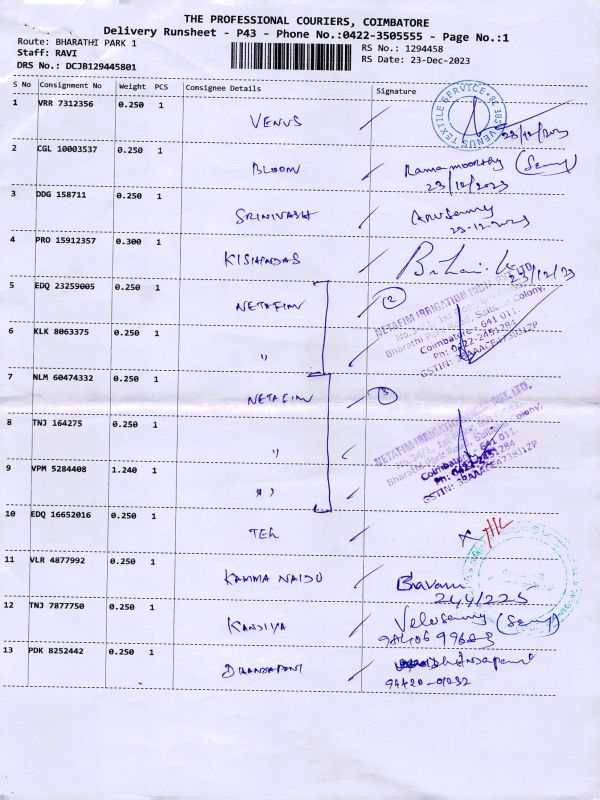 THE PROFESSIONAL COURIERS, COIMBATORE
Delivery Runsheet - P43 - Phone No.:0422-3505555 - Page No.:1
Route: BHARATHI PARK 1 RS No.: 1294458
Staff: RAVI RS Date: 23-Dec-2023
DRS No.: DCJB129445801
S No Consignment No Weight PCS Consignee Details Signature
1 VRR 7312356 0.250 1 VENUS
VENUS TEXTILE SERVICE
23/12/2023
2 CGL 10003537 0.250 1 BLOOM Ramamoorthy
23/12/2023
3 DDG 158711 0.250 1 SRINIVASH
23-12-2023
4 PRO 15912357 0.300 1
23/12/23
5 EDQ 23259005 0.250 1 NETAFIM 2
NETAFIM IRRIGATION INDIA PVT. LTD.
Coimbatore - 641 011.
Ph: 0422-2451284
6 KLK 8063375 0.250 1 "
7 NLM 60474332 0.250 1 NETAFIM 3
NETAFIM IRRIGATION INDIA PVT. LTD.
8 TNJ 164275 0.250 1 "
Coimbatore - 641 011.
Ph: 0422-2451284
9 VPM 5284408 1.240 1 "
10 EDQ 16652016 0.250 1
11 VLR 4877992 0.250 1 KAMMA NAIDU Bavani
12 TNJ 7877750 0.250 1 KANDIYA Velusamy
13 PDK 8252442 0.250 1 DHANDAPANI